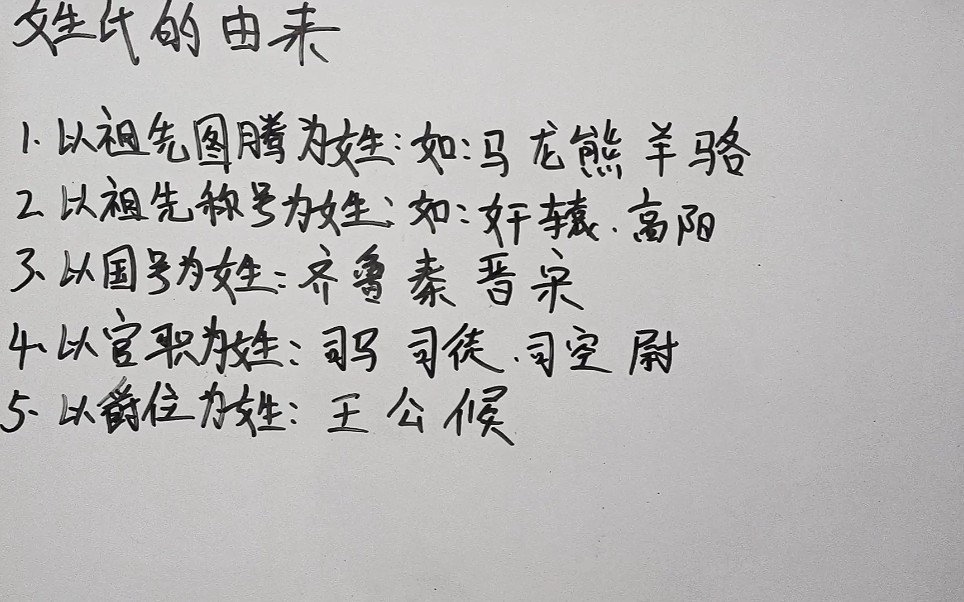 姓氏的由来
1. 以祖先图腾为姓：如：马龙熊羊骆
2. 以祖先称号为姓：如：奸辕.高阳
3. 以国号为姓：齐鲁秦晋宋
4. 以官职为姓：司马 司徒.司空 尉
5. 以爵位为姓：王公候